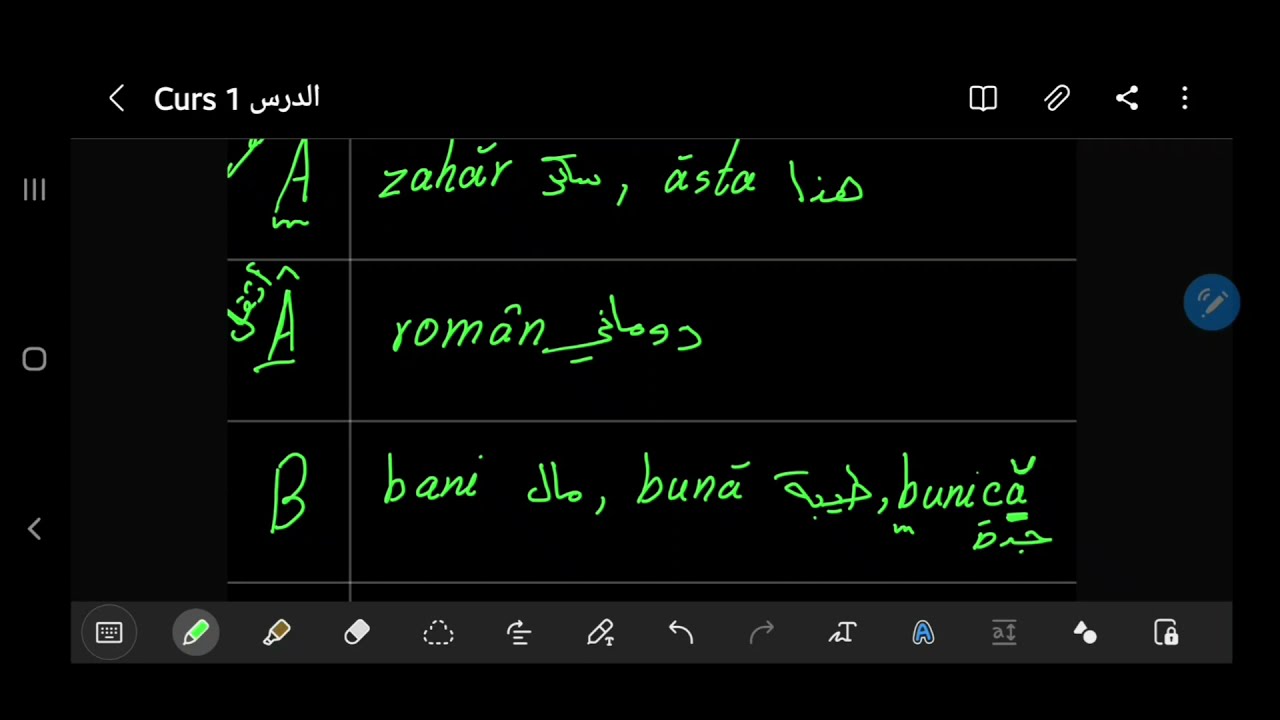 Curs 1 الدرس
A zahăr سكر, ăsta هذا
أثقل Â român روماني
B bani مال, bună طيبة, bunică
جدة